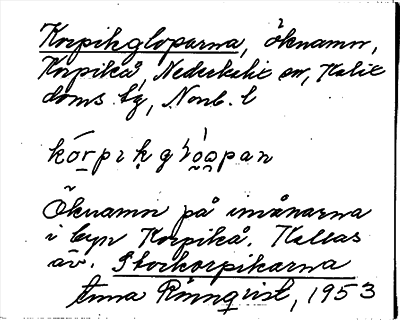 Korpikgloparna, öknamn,
Korpikå, Nederkalix sn, Kalix
doms. lg, Norrb. l
kórpikgloopan
Öknamn på invånarna
i byn Korpikå. Kallas
äv. Storkorpikarna
Anna Rönnqvist, 1953